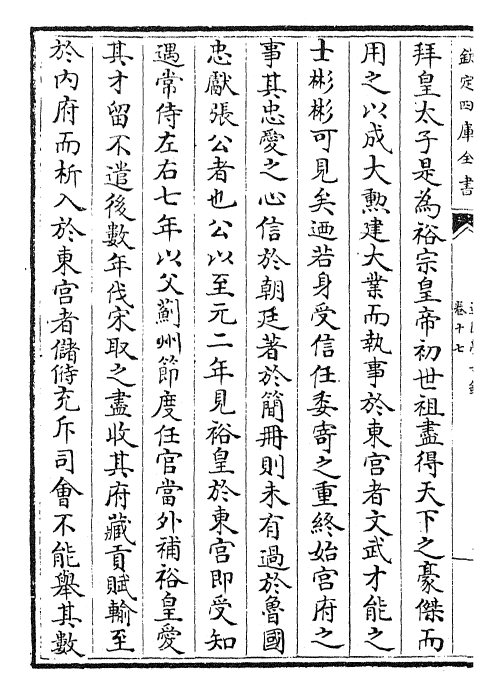 欽定四庫全書
卷十七
拜皇太子是為裕宗皇帝初世祖盡得天下之豪傑而
用之以成大勲建大業而執事於東宫者文武才能之
士彬彬可見矣廼若身受信任委寄之重終始宫府之
事其忠愛之心信於朝廷著於簡冊則未有過於魯國
忠獻張公者也公以至元二年見裕皇於東宫即受知
遇常侍左右七年以父薊州節度任官當外補裕皇愛
其才留不遣後數年伐宋取之盡收其府藏貢賦輸至
於内府而析入於東宫者儲偫充斥司會不能舉其數